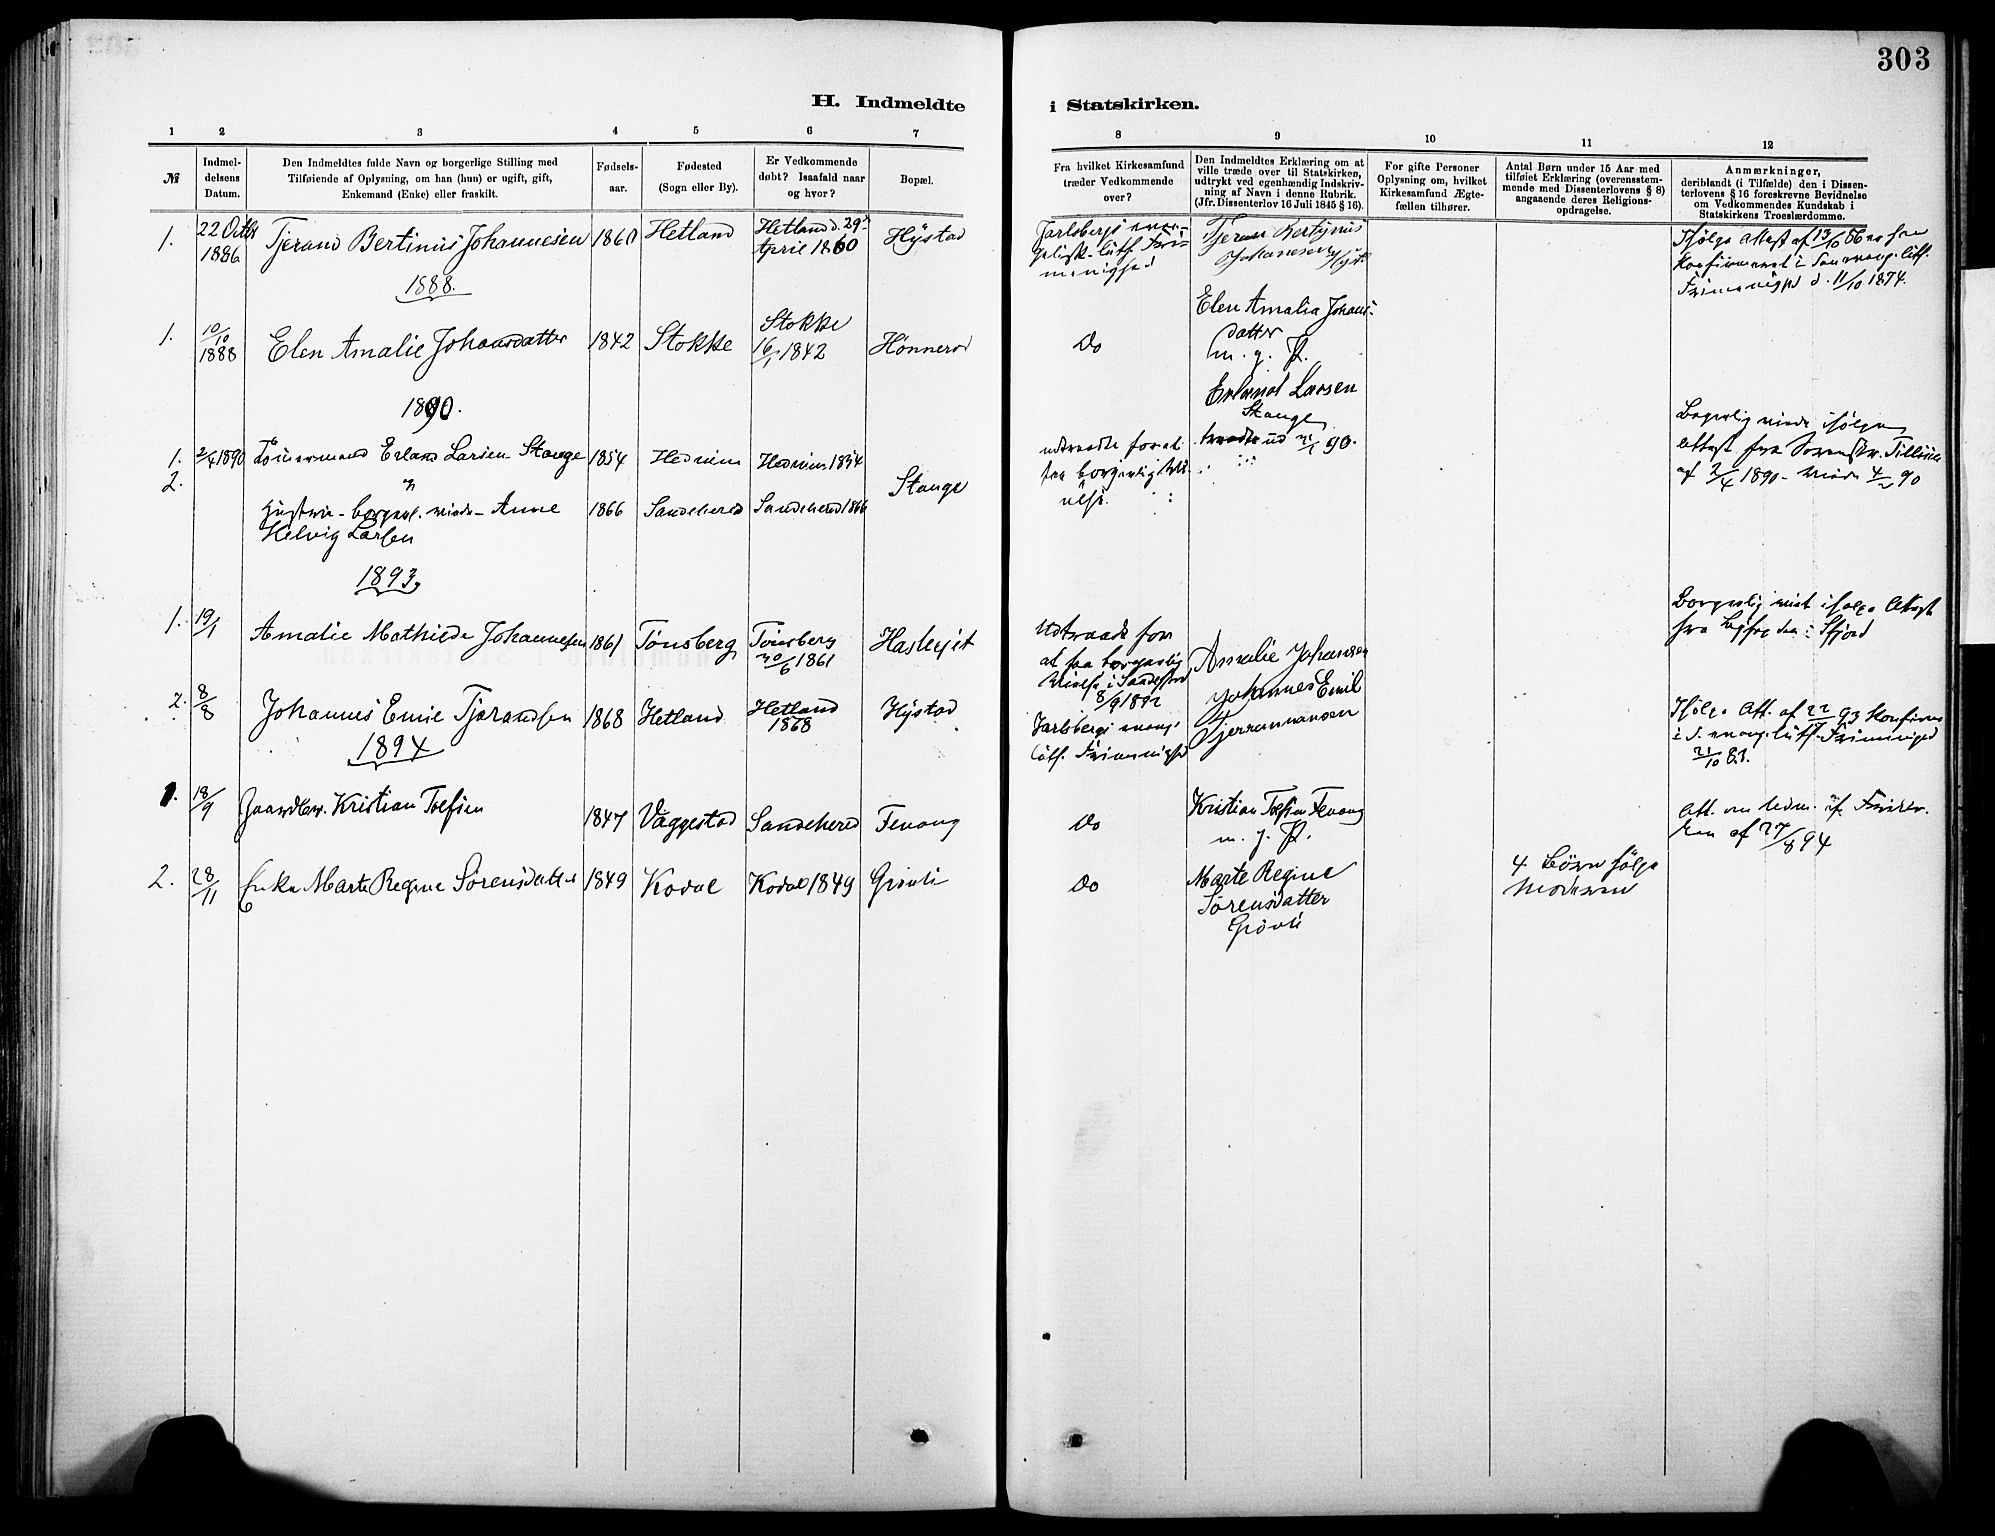 303
H. Indmeldte i Statskirken.
1 2 3 4 5 6 7 8 9 10 11 12
№
Indmel-
delsens
Datum.
Den Indmeldtes fulde Navn og borgerlige Stilling med
Tilføiende af Oplysning, om han (hun) er ugift, gift,
Enkemand (Enke) eller fraskilt.
Fødsels-
aar.
Fødested
(Sogn eller By).
Er Vedkommende
døbt? Isaafald naar
og hvor?
Bopæl.
Fra hvilket Kirkesamfund
træder Vedkommende
over?
Den Indmeldtes Erklæring om at
ville træde over til Statskirken,
udtrykt ved egenhændig Indskriv-
ning af Navn i denne Rubrik.
(Jfr. Dissenterlov 16 Juli 1845 § 16).
For gifte Personer
Oplysning om, hvilket
Kirkesamfund Ægte-
fællen tilhører.
Antal Børn under 15 Aar med
tilføiet Erklæring (overensstem-
mende med Dissenterlovens § 8)
angaaende deres Religions-
opdragelse.
Anmærkninger,
deriblandt (i Tilfælde) den i Dissen-
terlovens § 16 foreskrevne Bevidnelse
om Vedkommendes Kundskab i
Statskirkens Troeslærdomme.
1.
22 Octbr
1886
Tjerand Bertinus Johannesen
1860
Hetland
Hetland d. 29de
April 1860
Hystad
Jarlsbergs evan-
gelisk-luth. Fri-
menighed
Tjeran Bertynus
Johanesen
Ifølge Attest af 13/10 86 er han
Konfirmeret i evang. luth.
Frimenighed d. 11/10 1874.
1888.
1.
10/10
1888
Elen Amalie Johansdatter
1842
Stokke
Stokke
16/1 1842
Hønnerød
Do
Elen Amalia Johans-
datter
m. p. P.
1890.
1.
2/4 1890
Tømermand Erland Larsen Stange
1854
Hedrum
Hedrum 1854
Stange
udtraadte for at
faa borgerlig Vi-
else.
Erland Larsen
Stange
traadte ud 21/1 90.
Borgerlig viede ifølge
Attest fra Sorenskr.
af 2/4 1890 - viede 4/2 90
2.
og
Hustru - borgerl. viede - Anne
Helvig Larsen
1866
Sandeherred
Sandeherred 1866
1893.
1.
19/1
Amalie Mathilde Johannesen
1861
Tønsberg
Tønsberg
20/6 1861
Haslejet
Udtraadt for
at faa borgerlig
Vielse i Sandefjord
8/9 1892
Amalie Johansen
Borgerlig viet ifølge Attest
fra Byfogden i Sfjord
2.
8/8
Johannes Emil Tjerandsen
1868
Hetland
Hetland
1868
Hystad
Jarlsbergs evang.
luth. Frimenighed
Johannes Emil
Tjerranansen
Ifølge Att. af 22/7 93 Konfirm.
i S. evang. luth. Frimenighed
21/10 83.
1894
1.
18/9
Gaardbr. Kristian Tolfsen
1847
Vaggestad
Sandeherred
Fevang
Do
Kristian Tolfsen Fevang
m. p. P.
Att. om Udm. af Frikir-
ken af 27/8 94
2.
28/11
Enke Marte Regine Sørensdatter
1849
Kodal
Kodal 1849
Grøvli
Do
Marte Regine
Sørensdatter
Grøvli
4 Børn følge
Moderen